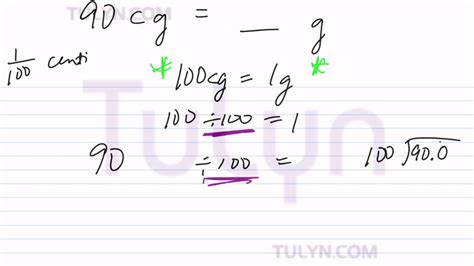 TULYN.COM
90 cg = __ g
1/100 centi
* 100cg = 1g *
100 ÷100 = 1
Tulyn
90 ÷100 = 100⟌90.0
TULYN.COM